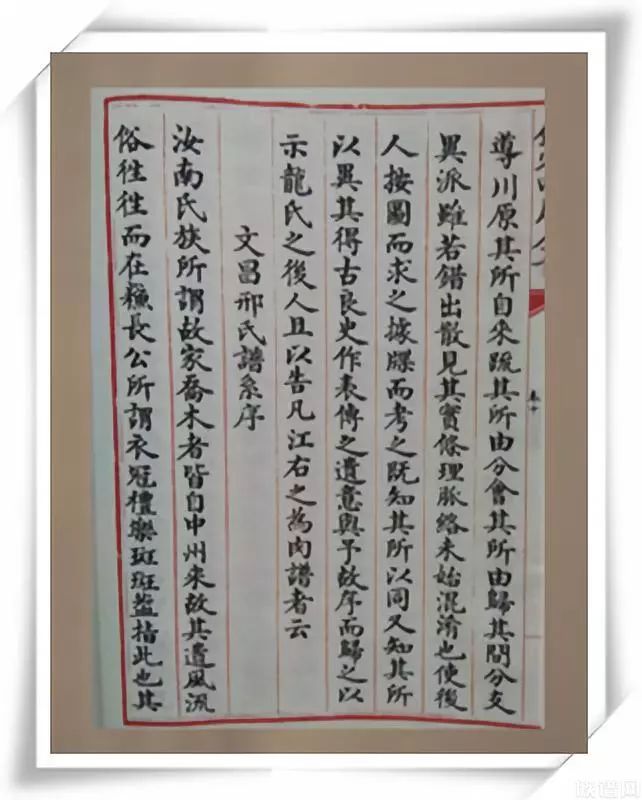 導川原其所自来疏其所由分會其所由歸其間分支
異派雖若錯出散見其實條理脈絡未始混淆也使後
人按圖而求之據牒而考之既知其所以同又知其所
以異其得古良史作表傳之遺意與予故序而歸之以
示龍氏之後人且以告凡江右之為肉譜者云
文昌邢氏譜系序
汝南氏族所謂故家喬木者皆自中州来故其遺風流
俗徃徃而在蘓長公所謂衣冠禮樂斑斑葢指此也其
族谱网